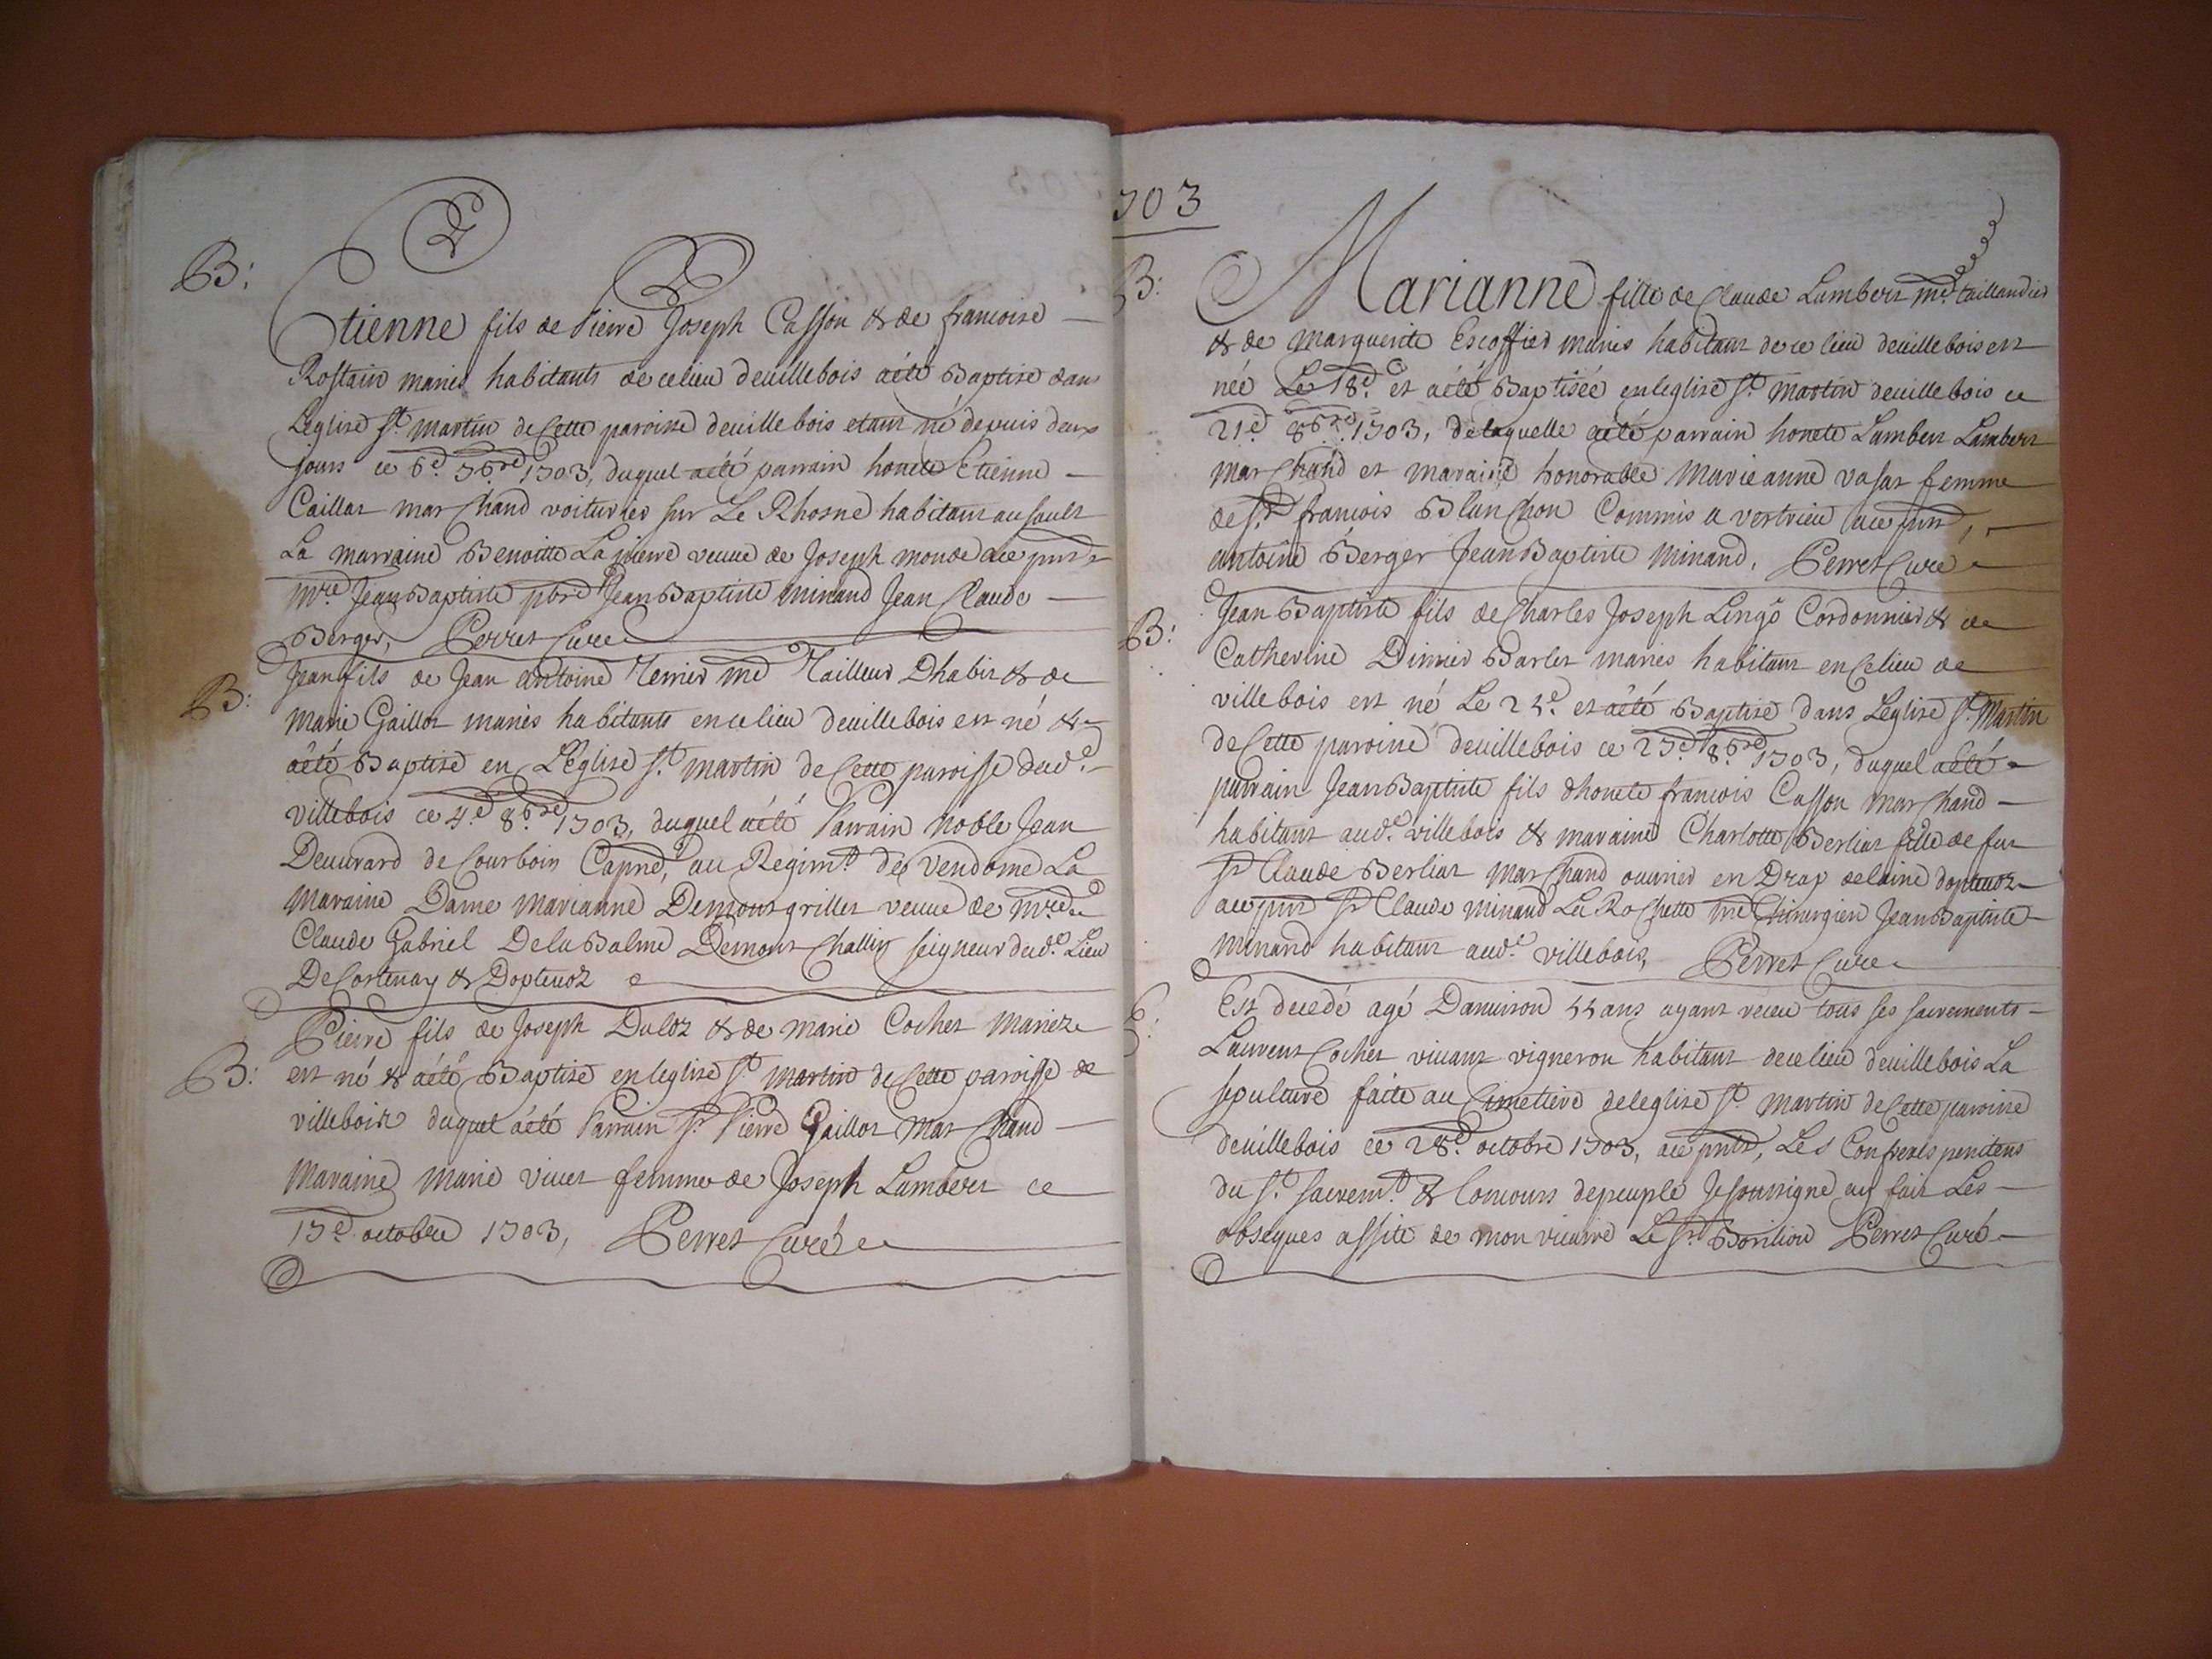 1703
B:
Etienne fils de Pierre Joseph Casson & de francoise
Rostain mariés habitants de celieu deuillebois aété Baptisé dans
Leglise St. martin de Cette paroisse deuille bois etant né depuis deux
jours ce 6e. 7bre 1703, duquel aété parrain honete Etienne
Caillat marchand voiturier sur Le Rhosne habitant au sault
La marraine Benoitte Lapierre veuue de Joseph monde ace pnts
mre Jean Baptiste pbre Jean Baptiste minand Jean Claude
Berger, Perret Curé
B:
Jean fils de Jean antoine Terrier me Tailleur Dhabit & de
Marie Gaillot mariés habitants en ce lieu deuillebois est né &
aété Baptisé en L'Eglise St. martin de Cette paroisse dud.
villebois ce 4e. 8bre 1703, duquel aété Parrain Noble Jean
Deuurard de Courboin Capne, au Regimt de Vendome La
Maraine Dame Marianne Demontgrillet veuue de mre
Claude Gabriel Dela Balme Demont Challin seigneur dud. Lieu
De Cortenay & Dopteuoz
B:
Pierre fils de Joseph Duloz & de marie Cochet Mariez
est né & aété Baptisé en leglise St. Martin de Cette paroisse de
villebois duquel aété Parrain Sr Pierre Gaillot Marchand
Maraine marie viuet femme de Joseph Lambert ce
17e. octobre 1703, Perret Curé
B:
Marianne fille de Claude Lambert me. taillandier
& de Marguerite Escoffier mariés habitant de ce lieu deuillebois est
née Le 18e. et aété Baptisée en leglise St. Martin deuillebois ce
21e 8bre. 1703, delaquelle aété parrain honete Lambert Lambert
marchand et maraine honorable Marieanne vasat femme
de Sr. francois Blanchon Commis a vertrieu ace pnts,
antoine Berger Jean Baptiste Minand, Perret Curé
B:
Jean Baptiste fils de Charles Joseph Lingo Cordonnier & de
Catherine Dimier Barlet mariés habitant en Celieu de
villebois est né Le 25e. et aété Baptisé dans Leglise St. Martin
de Cette paroisse deuillebois ce 27e. 8bre 1703, duquel aété
parrain Jean Baptiste fils dhonete francois Casson Marchand
habitant aud. villebois & maraine Charlotte Berliat fille de fut
Sr Claude Berliat Marchand ouurier en Drap delaine dopteuoz
ace pnts Sr Claude minand La Rochette me Chirurgien Jean Baptiste
Minand habitant aud. villebois, Perret Curé
Est decedé agé Danuiron 55 ans ayant receu tous ses sacrements
Laurent Cochet viuant vigneron habitant de ce lieu deuillebois La
sepulture faite au Cimetiere deleglise St. Martin de Cette paroisse
deuillebois ce 28e. octobre 1703, ace pnts, Les Confreres penitens
du St. sacremt & Concours de peuple Je soussigné ay fait Les
obseques assité de mon vicaire Le Sr Perret Curé